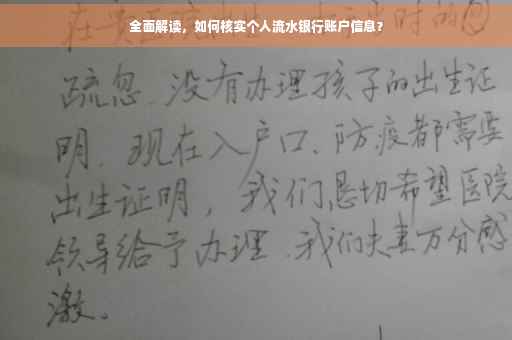 全面解读，如何核实个人流水银行账户信息？
疏忽、没有办理孩子的出生证
明、现在入户口、防疫都需要
出生证明，我们恳切希望医院
领导给予办理、我们夫妻万分感
激。